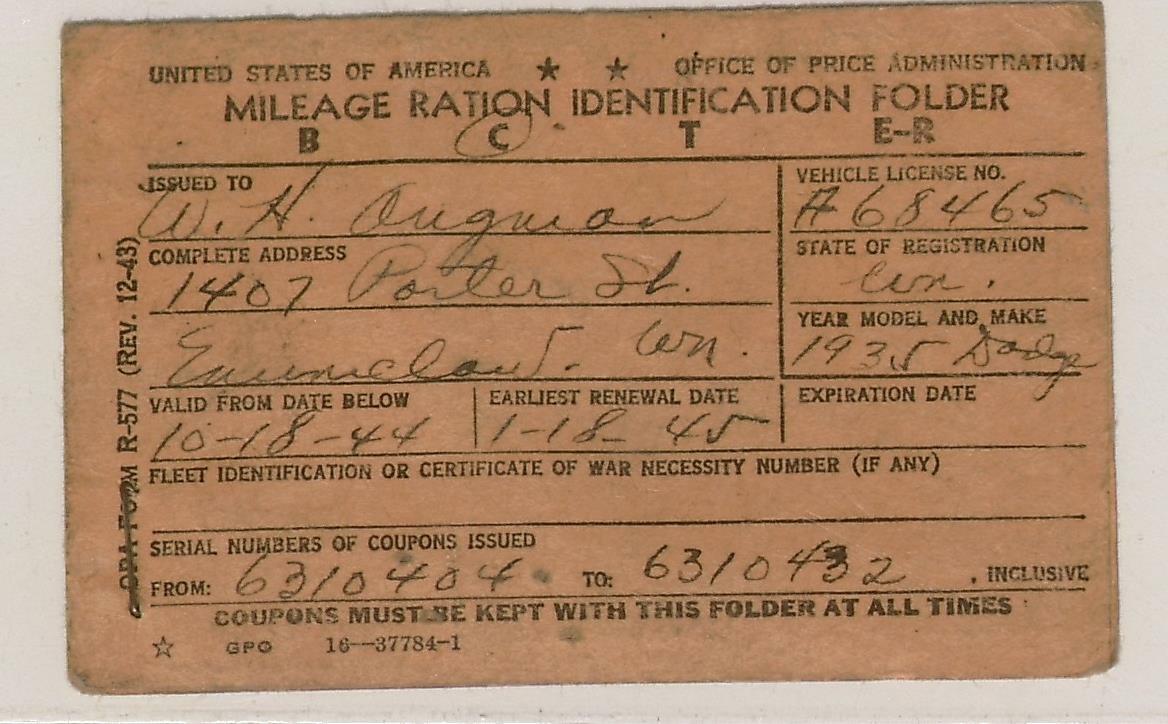 UNITED STATES OF AMERICA ★ ★ OFFICE OF PRICE ADMINISTRATION
MILEAGE RATION IDENTIFICATION FOLDER
B C T E-R
ISSUED TO
W. H. Ongman
VEHICLE LICENSE NO.
A68465
COMPLETE ADDRESS
1407 Porter St.
Enumclaw. Wn.
STATE OF REGISTRATION
Wn.
YEAR MODEL AND MAKE
1935 Dodge
VALID FROM DATE BELOW
10-18-44
EARLIEST RENEWAL DATE
1-18-45
EXPIRATION DATE
FLEET IDENTIFICATION OR CERTIFICATE OF WAR NECESSITY NUMBER (IF ANY)
SERIAL NUMBERS OF COUPONS ISSUED
FROM: 6310404 TO: 6310432 , INCLUSIVE
COUPONS MUST BE KEPT WITH THIS FOLDER AT ALL TIMES
☆ GPO 16—37784-1
OPA FORM R-577 (REV. 12-43)